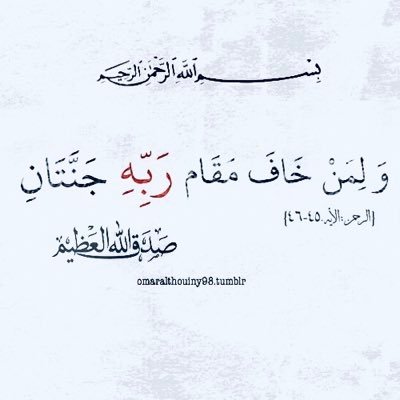 بِسْمِ ٱللَّهِ ٱلرَّحْمَٰنِ ٱلرَّحِيمِ
وَلِمَنْ خَافَ مَقَام رَبِّهِ جَنَّتَانِ
{الرحمن:الآية:٤٥-٤٦}
صَدَقَ اللهُ العَظِيْم
omaralthouiny98.tumblr